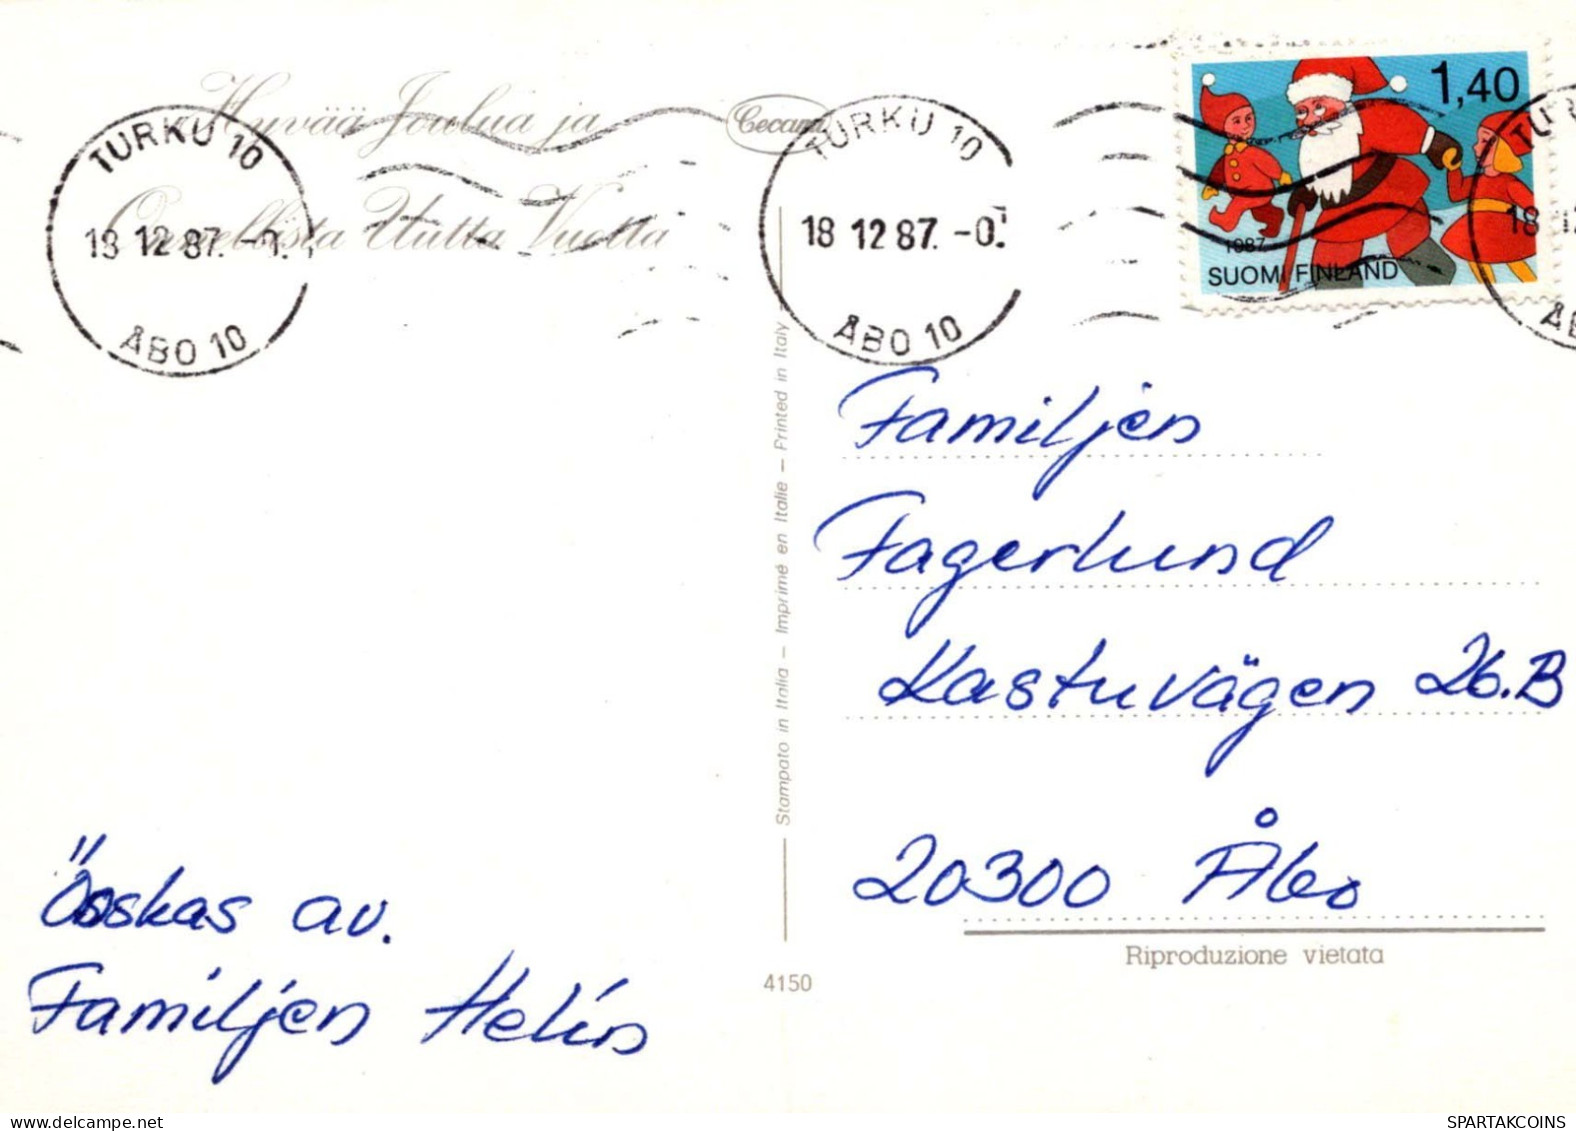 Hyvää Joulua ja
Onnellista Uutta Vuotta
Cecami
TURKU 10
18 12 87. -0.
ÅBO 10
TURKU 10
18 12 87. -0.
ÅBO 10
1,40
1987
SUOMI FINLAND
TU
18 12
ÅB
Familjen
Fagerlund
Kastuvägen 26.B
20300 Åbo
Riproduzione vietata
Stampato in Italia – Imprimé en Italie – Printed in Italy
4150
Önskas av.
Familjen Helin
SPARTAKCOINS